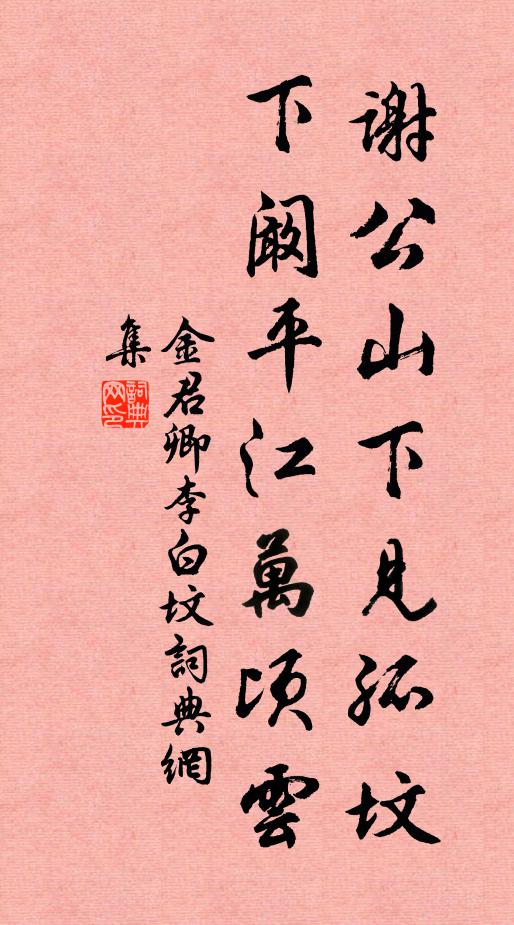 謝公山下見孤坟
下阚平江萬頃雲
金君卿李白坟詞典網
集
詞典网印